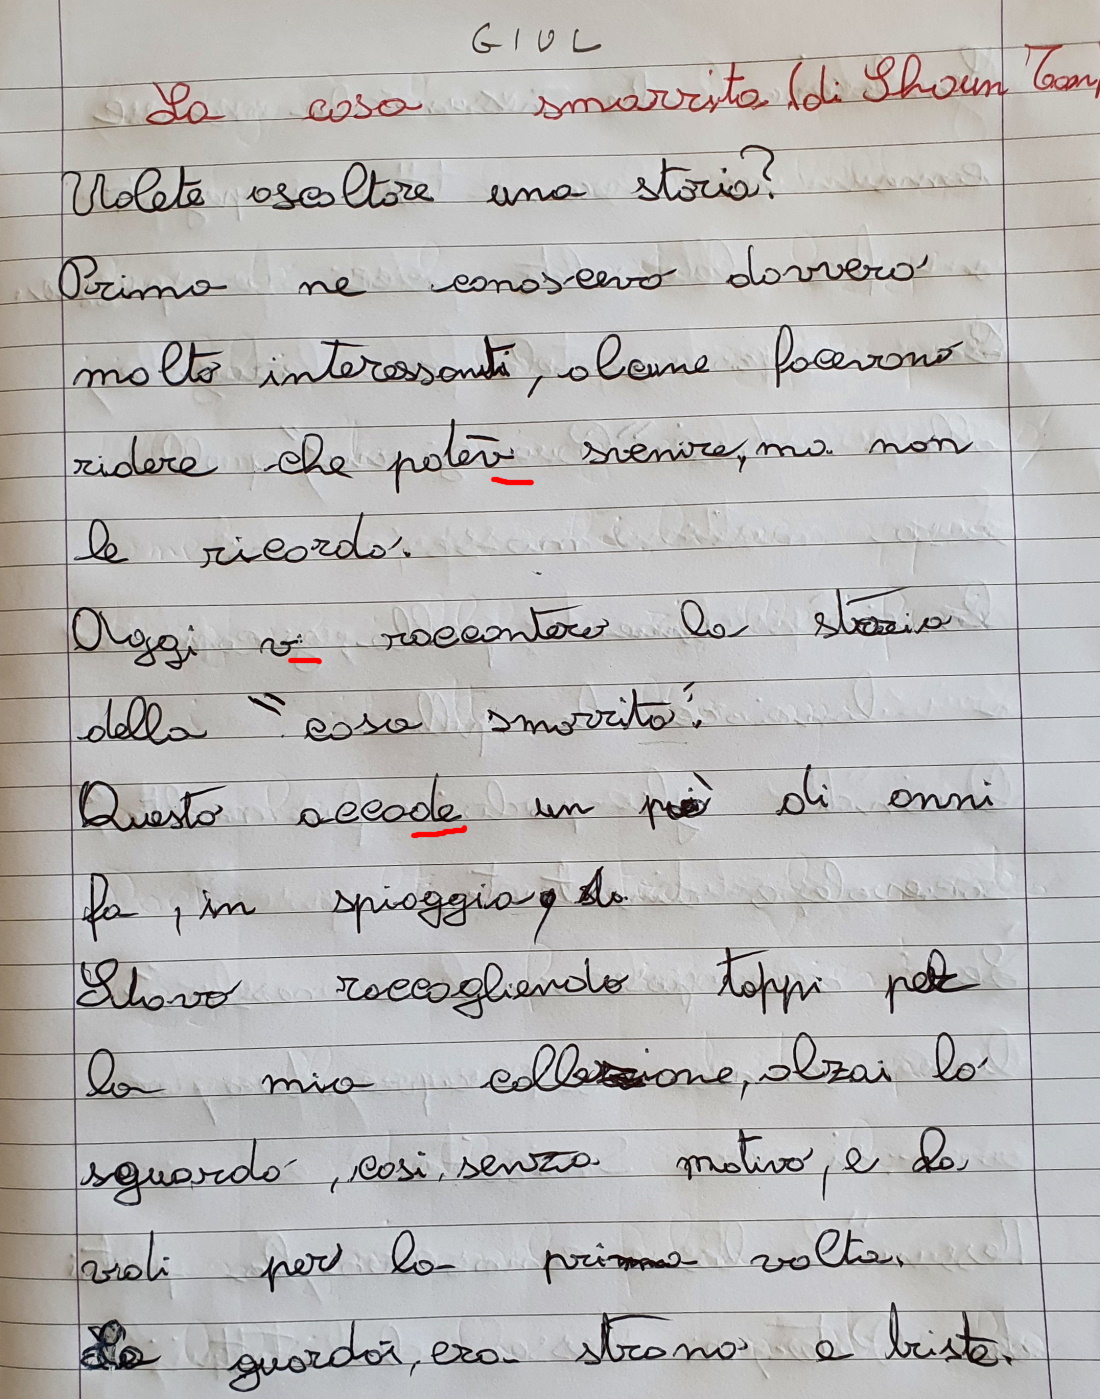 GIUL
La cosa smarrita (di Shaun Tan,
Volete ascoltare una storia?
Prima ne conoscevo davvero
molto interessanti, alcune facevano
ridere che potēv svenire, ma non
le ricordo.
Oggi vi racconterò la storia
della "cosa smarrita".
Questo accade un pò di anni
fa, in spiaggia,
Stavo raccogliendo tappi per
la mia collezione, alzai lo
sguardo, cosi, senza motivo, e la
vidi per la prima volta.
La guardai, era strana e triste.